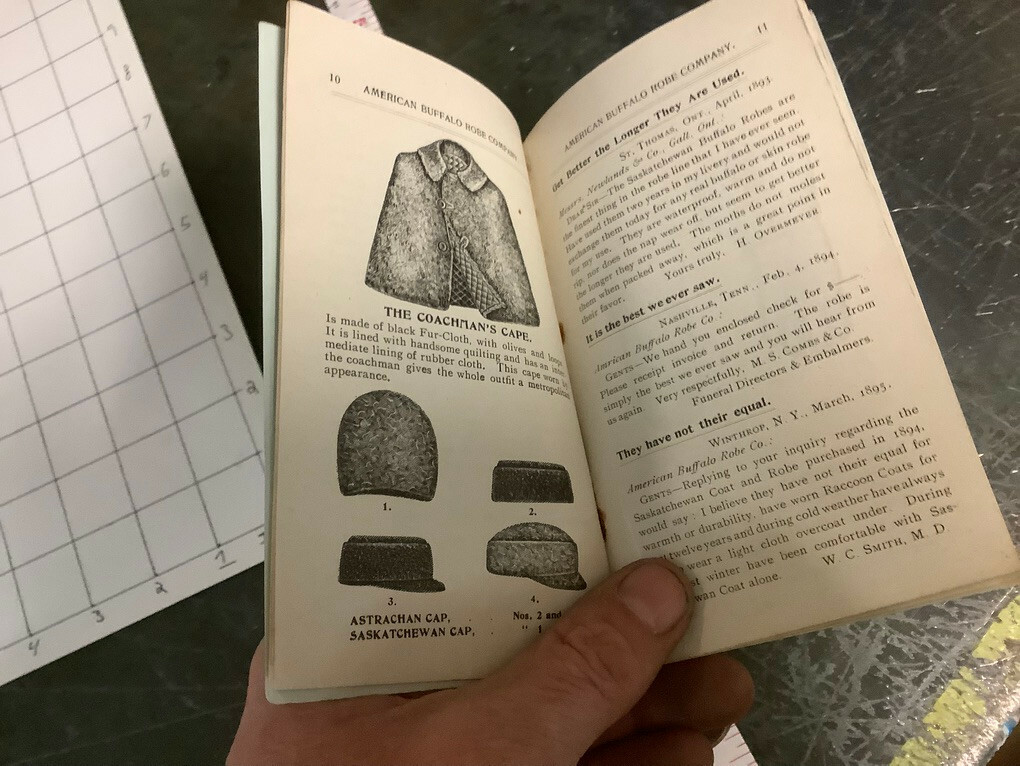 10
AMERICAN BUFFALO ROBE COMPANY
THE COACHMAN'S CAPE.
Is made of black Fur-Cloth, with olives and loops.
It is lined with handsome quilting and has an inter-
mediate lining of rubber cloth. This cape worn by
the coachman gives the whole outfit a metropolitan
appearance.
1.
2.
3.
4.
ASTRACHAN CAP, Nos. 2 and
SASKATCHEWAN CAP, " 1
11
AMERICAN BUFFALO ROBE COMPANY.
Get Better the Longer They Are Used.
ST. THOMAS, ONT., April, 1893.
Messrs. Newlands & Co., Galt, Ont.:
DEAR SIR—The Saskatchewan Buffalo Robes are
the finest thing in the robe line that I have ever seen.
Have used them two years in my livery and would not
exchange them today for any real buffalo or skin robe
for my use. They are waterproof, warm and do not
rip, nor does the nap wear off, but seem to get better
the longer they are used. The moths do not molest
them when packed away, which is a great point in
their favor. Yours truly, H. OVERMEYER.
It is the best we ever saw.
NASHVILLE, TENN., Feb. 4, 1894.
American Buffalo Robe Co.:
GENTS—We hand you enclosed check for $——
Please receipt invoice and return. The robe is
simply the best we ever saw and you will hear from
us again. Very respectfully, M. S. COMBS & CO.
Funeral Directors & Embalmers.
They have not their equal.
WINTHROP, N. Y., March, 1895.
American Buffalo Robe Co.:
GENTS—Replying to your inquiry regarding the
Saskatchewan Coat and Robe purchased in 1894,
would say: I believe they have not their equal for
warmth or durability, have worn Raccoon Coats for
twelve years and during cold weather have always
wear a light cloth overcoat under. During
winter have been comfortable with Sas-
wan Coat alone. W. C. SMITH, M. D
9
8
7
6
5
4
3
2
1
2
3
4